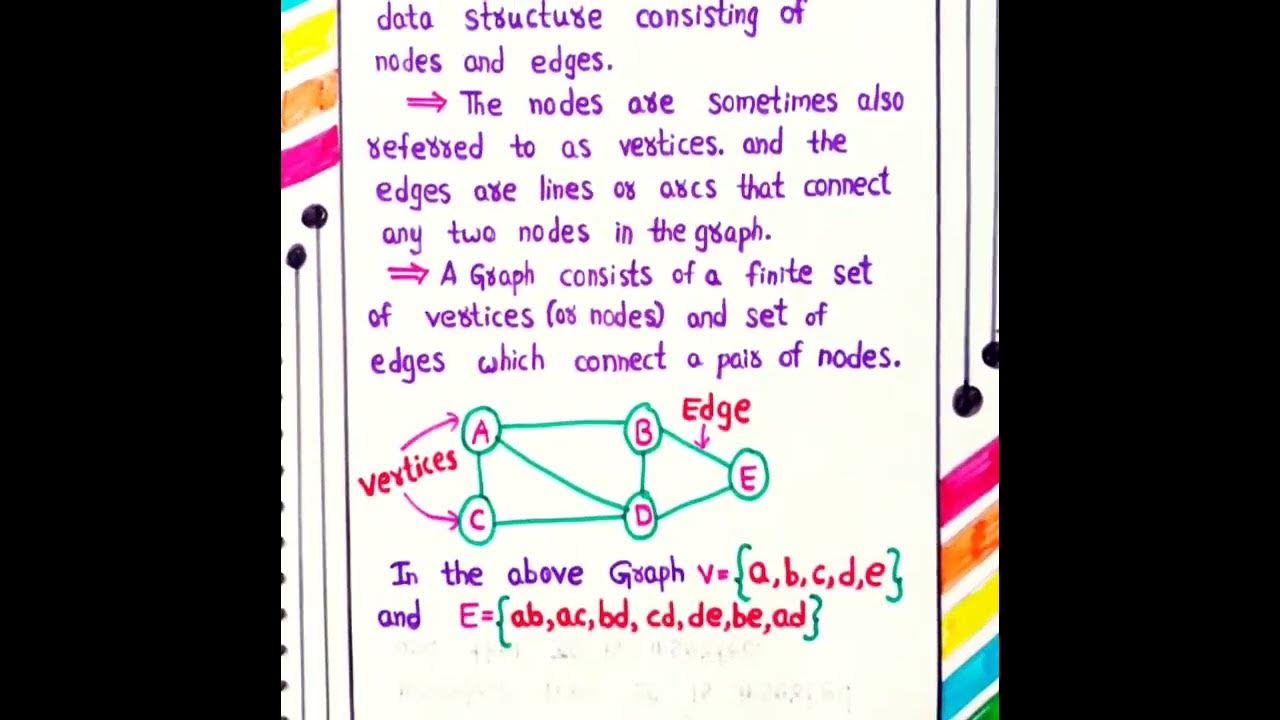 data structure consisting of
nodes and edges.
⇒ The nodes are sometimes also
referred to as vertices. and the
edges are lines or arcs that connect
any two nodes in the graph.
⇒ A Graph consists of a finite set
of vertices (or nodes) and set of
edges which connect a pair of nodes.
Edge
A B
E
vertices
C D
In the above Graph V={a,b,c,d,e}
and E={ab,ac,bd,cd,de,be,ad}